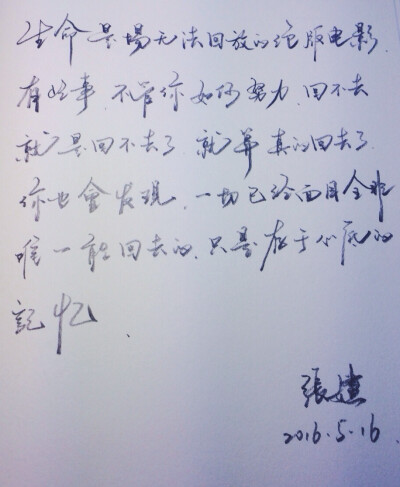 生命是場无法回放的绝版电影.
有些事.不管你如何努力.回不去
就是回不去了.就算真的回去了.
你也會发現.一切已经面目全非
唯一能回去的.只是存于心底的
記忆.
張
2016.5.16.